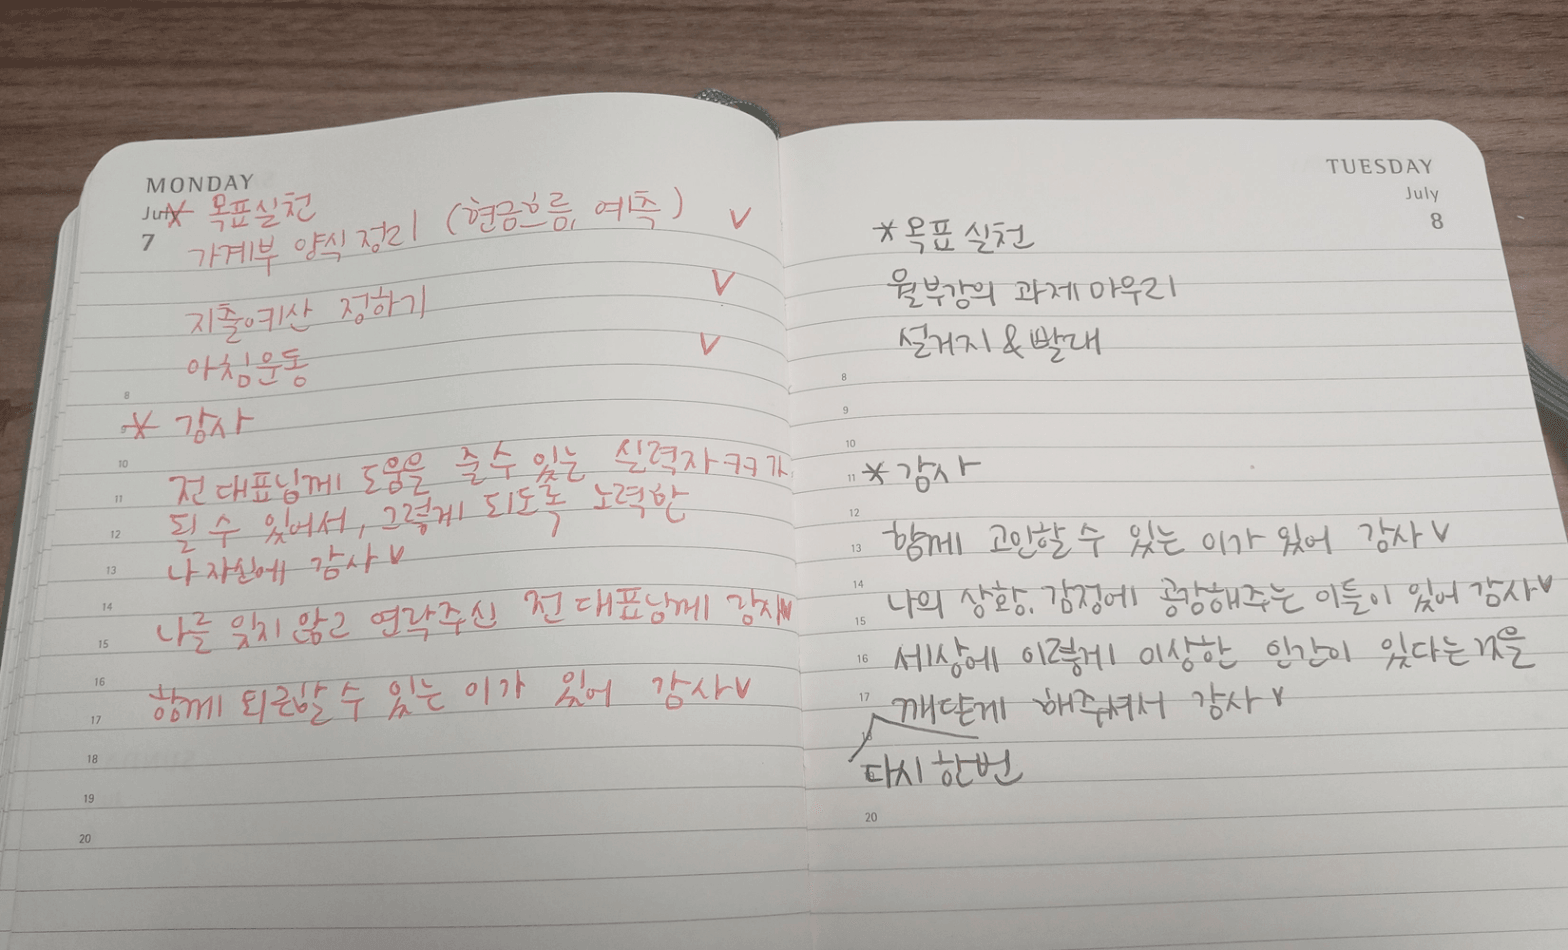 MONDAY
July
7
* 목표실천
가계부 양식 정리 (현금흐름, 예측) V
지출예산 정하기 V
아침운동 V
8
* 감사
10
전 대표님께 도움을 줄 수 있는 실력자
11
될 수 있어서, 그렇게 되도록 노력한
12
나 자신에 감사 V
13
14
나를 잊지 않고 연락주신 전 대표님께 감사
15
16
함께 퇴근할 수 있는 이가 있어 감사 V
17
18
19
20
TUESDAY
July
8
* 목표 실천
월부강의 과제 마무리
설거지 & 빨래
8
9
10
11 * 감사
12
13 함께 고민할 수 있는 이가 있어 감사 V
14
나의 상황, 감정에 공감해주는 이들이 있어 감사 V
15
16 세상에 이렇게 이상한 인간이 있다는 것을
17 깨닫게 해주셔서 감사 V
다시 한번
20